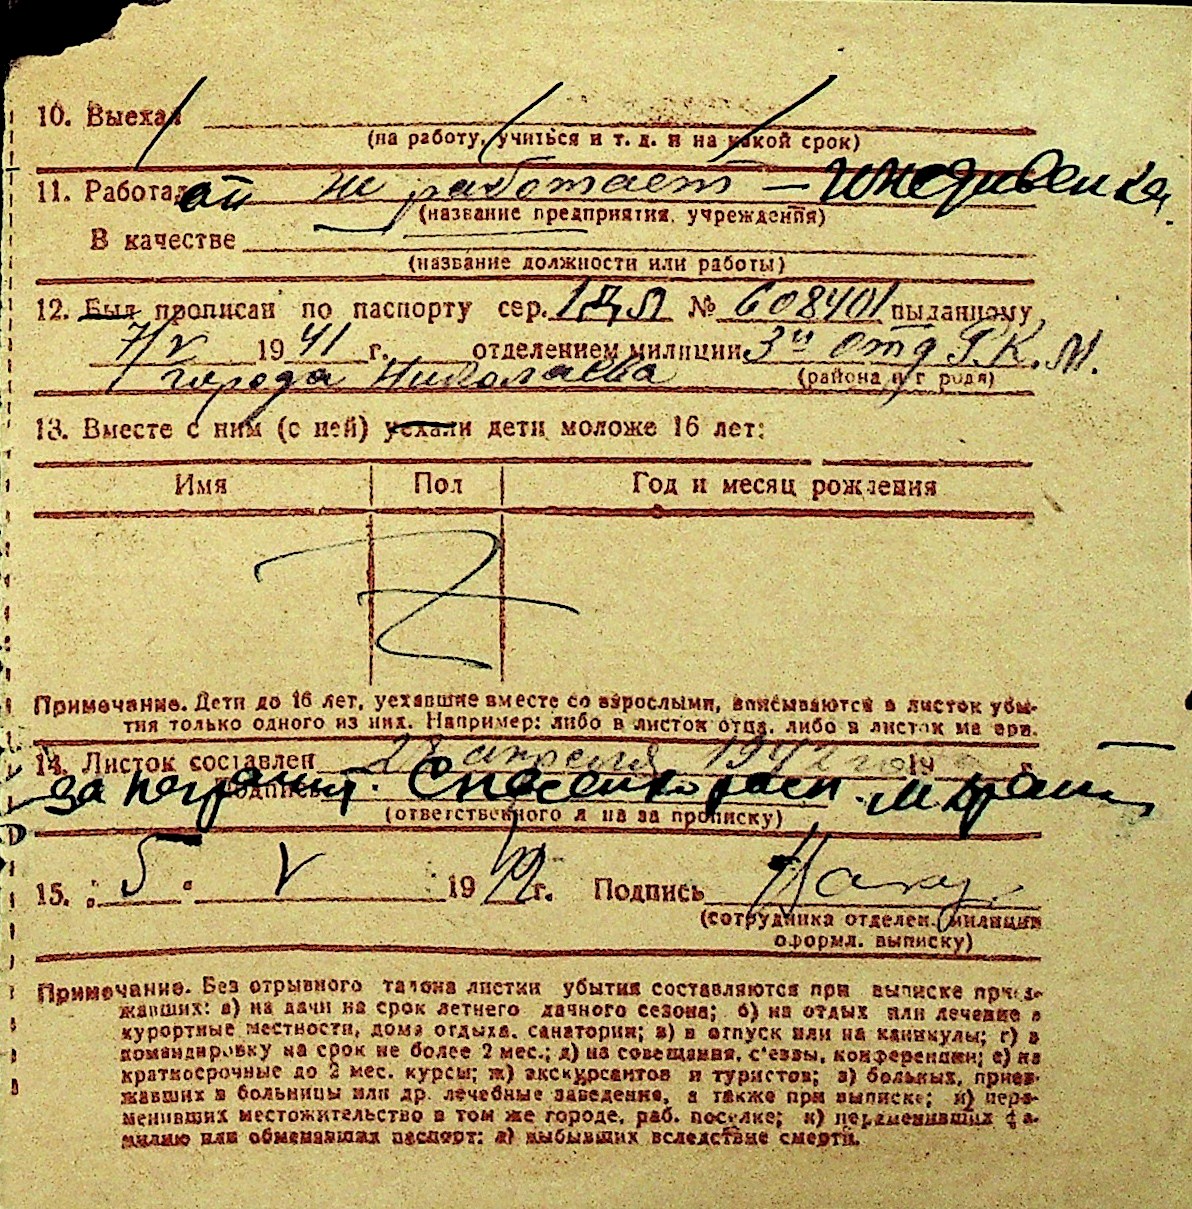 10. Выехал
(на работу, учиться и т. д. и на какой срок)
11. Работал не работает — иждивенка
(название предприятия, учреждения)
В качестве
(название должности или работы)
12. Был прописан по паспорту сер. № 608401 выданному
7/V 1941 г. отделением милиции 3и отд Р.К.М.
города Николаева (района и города)
13. Вместе с ним (с ней) уехали дети моложе 16 лет:
Имя Пол Год и месяц рождения
Примечание. Дети до 16 лет, уехавшие вместе со взрослыми, вписываются в листок убы-
тия только одного из них. Например: либо в листок отца, либо в листок матери.
14. Листок составлен апреля 1942 го 19 г.
Подпись
(ответственного за прописку)
15. 5 V 1942 г. Подпись
(сотрудника отделен. милиции
оформл. выписку)
Примечание. Без отрывного талона листки убытия составляются при выписке приез-
жавших: а) на дачи на срок летнего дачного сезона; б) на отдых или лечение в
курортные местности, дома отдыха, санатории; в) в отпуск или на каникулы; г) в
командировку на срок не более 2 мес.; д) на совещания, с'езды, конференции; е) на
краткосрочные до 2 мес. курсы; ж) экскурсантов и туристов; з) больных, приез-
жавших в больницы или др. лечебные заведение, а также при выписке; и) пере-
менивших местожительство в том же городе, раб. поселке; к) переменивших фа-
милию или обменявших паспорт; л) выбывших вследствие смерти.